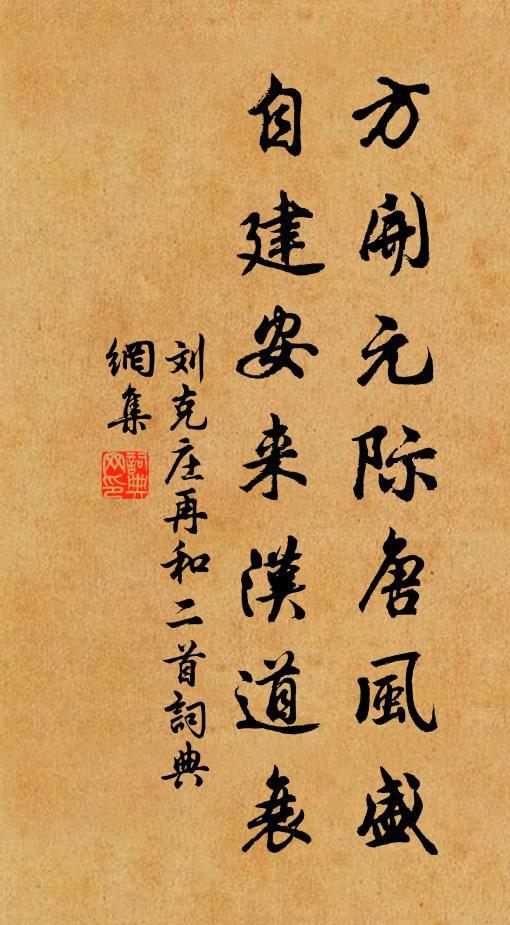 方開元际唐風盛
自建安来漢道衰
刘克庄再和二首詞典
網集
詞典網印